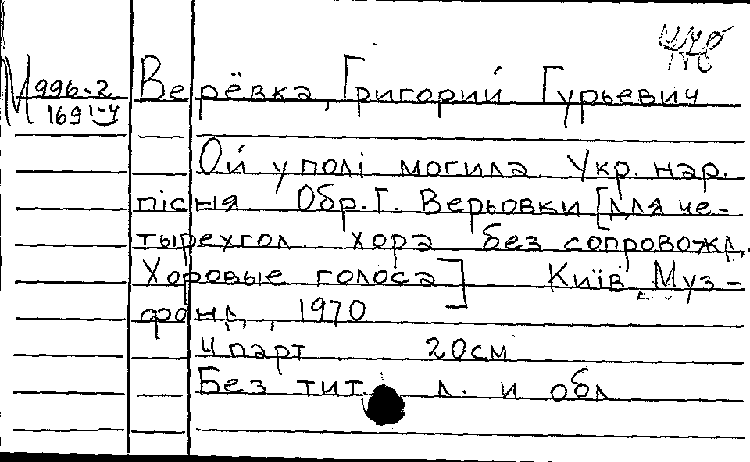 М 996-2
169 1-4
Верёвка, Григорий Гурьевич
Ой у полі могила. Укр. нар.
пісня Обр. Г. Верьовки [для че-
тырехгол хора без сопровожд.
Хоровые голоса] Київ, Муз-
фонд, 1970
4 парт 20см
Без тит. л. и обл